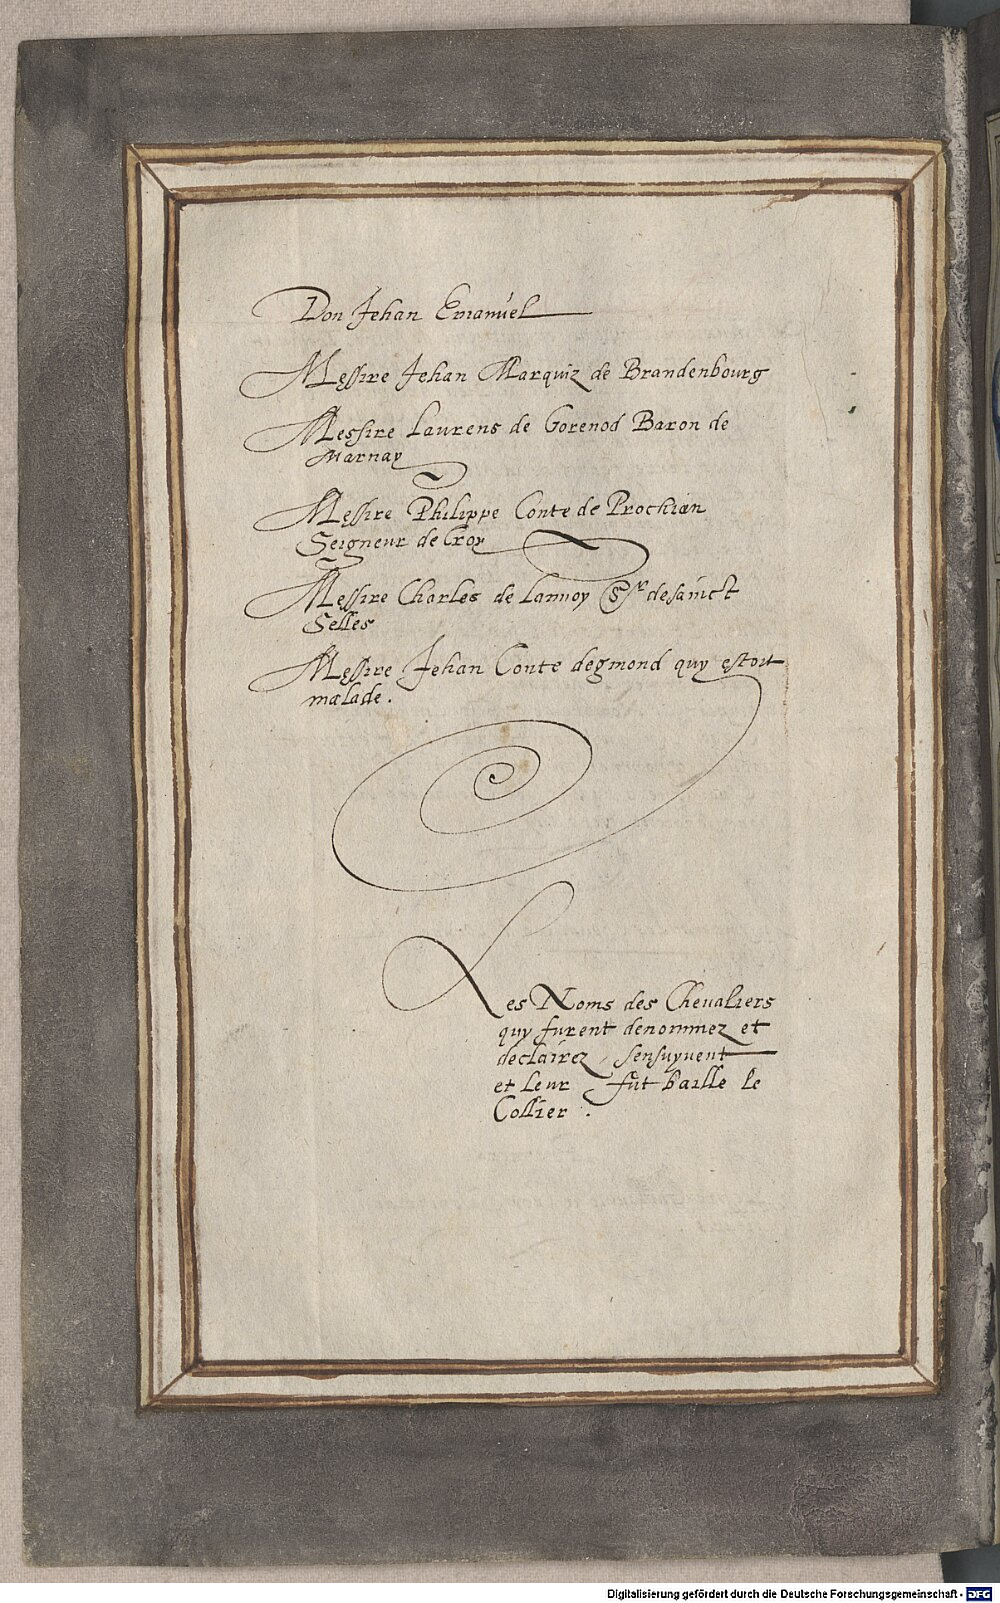 Don Jehan Emanüel
Messire Jehan Marquiz de Brandenbourg
Messire Laurens de Gorenod Baron de
Marnay
Messire Philippe Conte de Prochian
Seigneur de Croy
Messire Charles de Lannoy Sr de sainct
Selles
Messire Jehan Conte degmond quy estoit
malade.
Les Noms des Chevaliers
quy furent denommez et
declairez sensuyvent
et leur fut baille le
Collier.
Digitalisierung gefördert durch die Deutsche Forschungsgemeinschaft - DFG